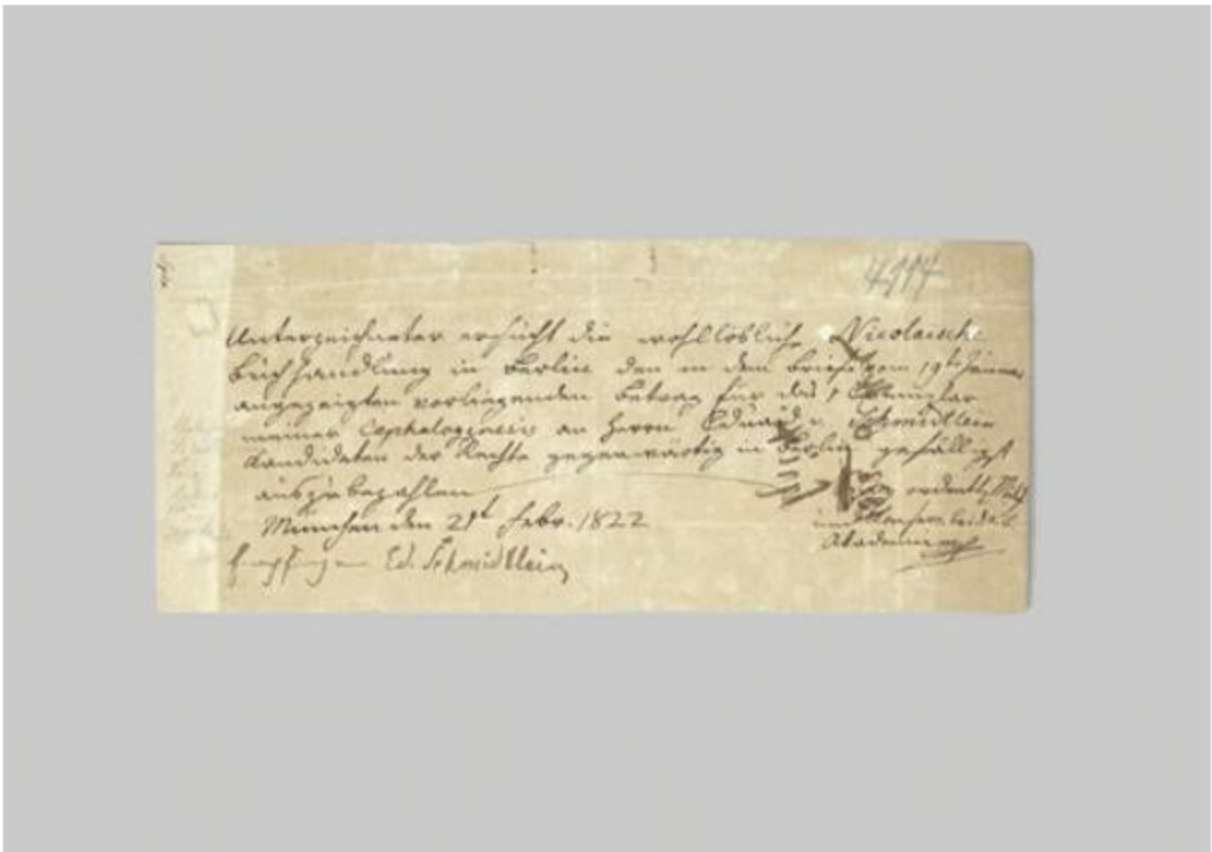 4114
Unterzeichneter ersucht die wohllöbliche Nicolaische
Buchhandlung in Berlin den in dem Briefe vom 19t Jänner
angezeigten vorliegenden Betrag für das 1 Exemplar
meiner Cephalogenesis an Herrn Eduard v. Schmidtlein
Kandidaten der Rechte gegenwärtig in Berlin gefälligst
auszubezahlen
München den 21t Febr. 1822
ordentl. Mitgl
und
Akademie
Empfangen Ed. Schmidtlein